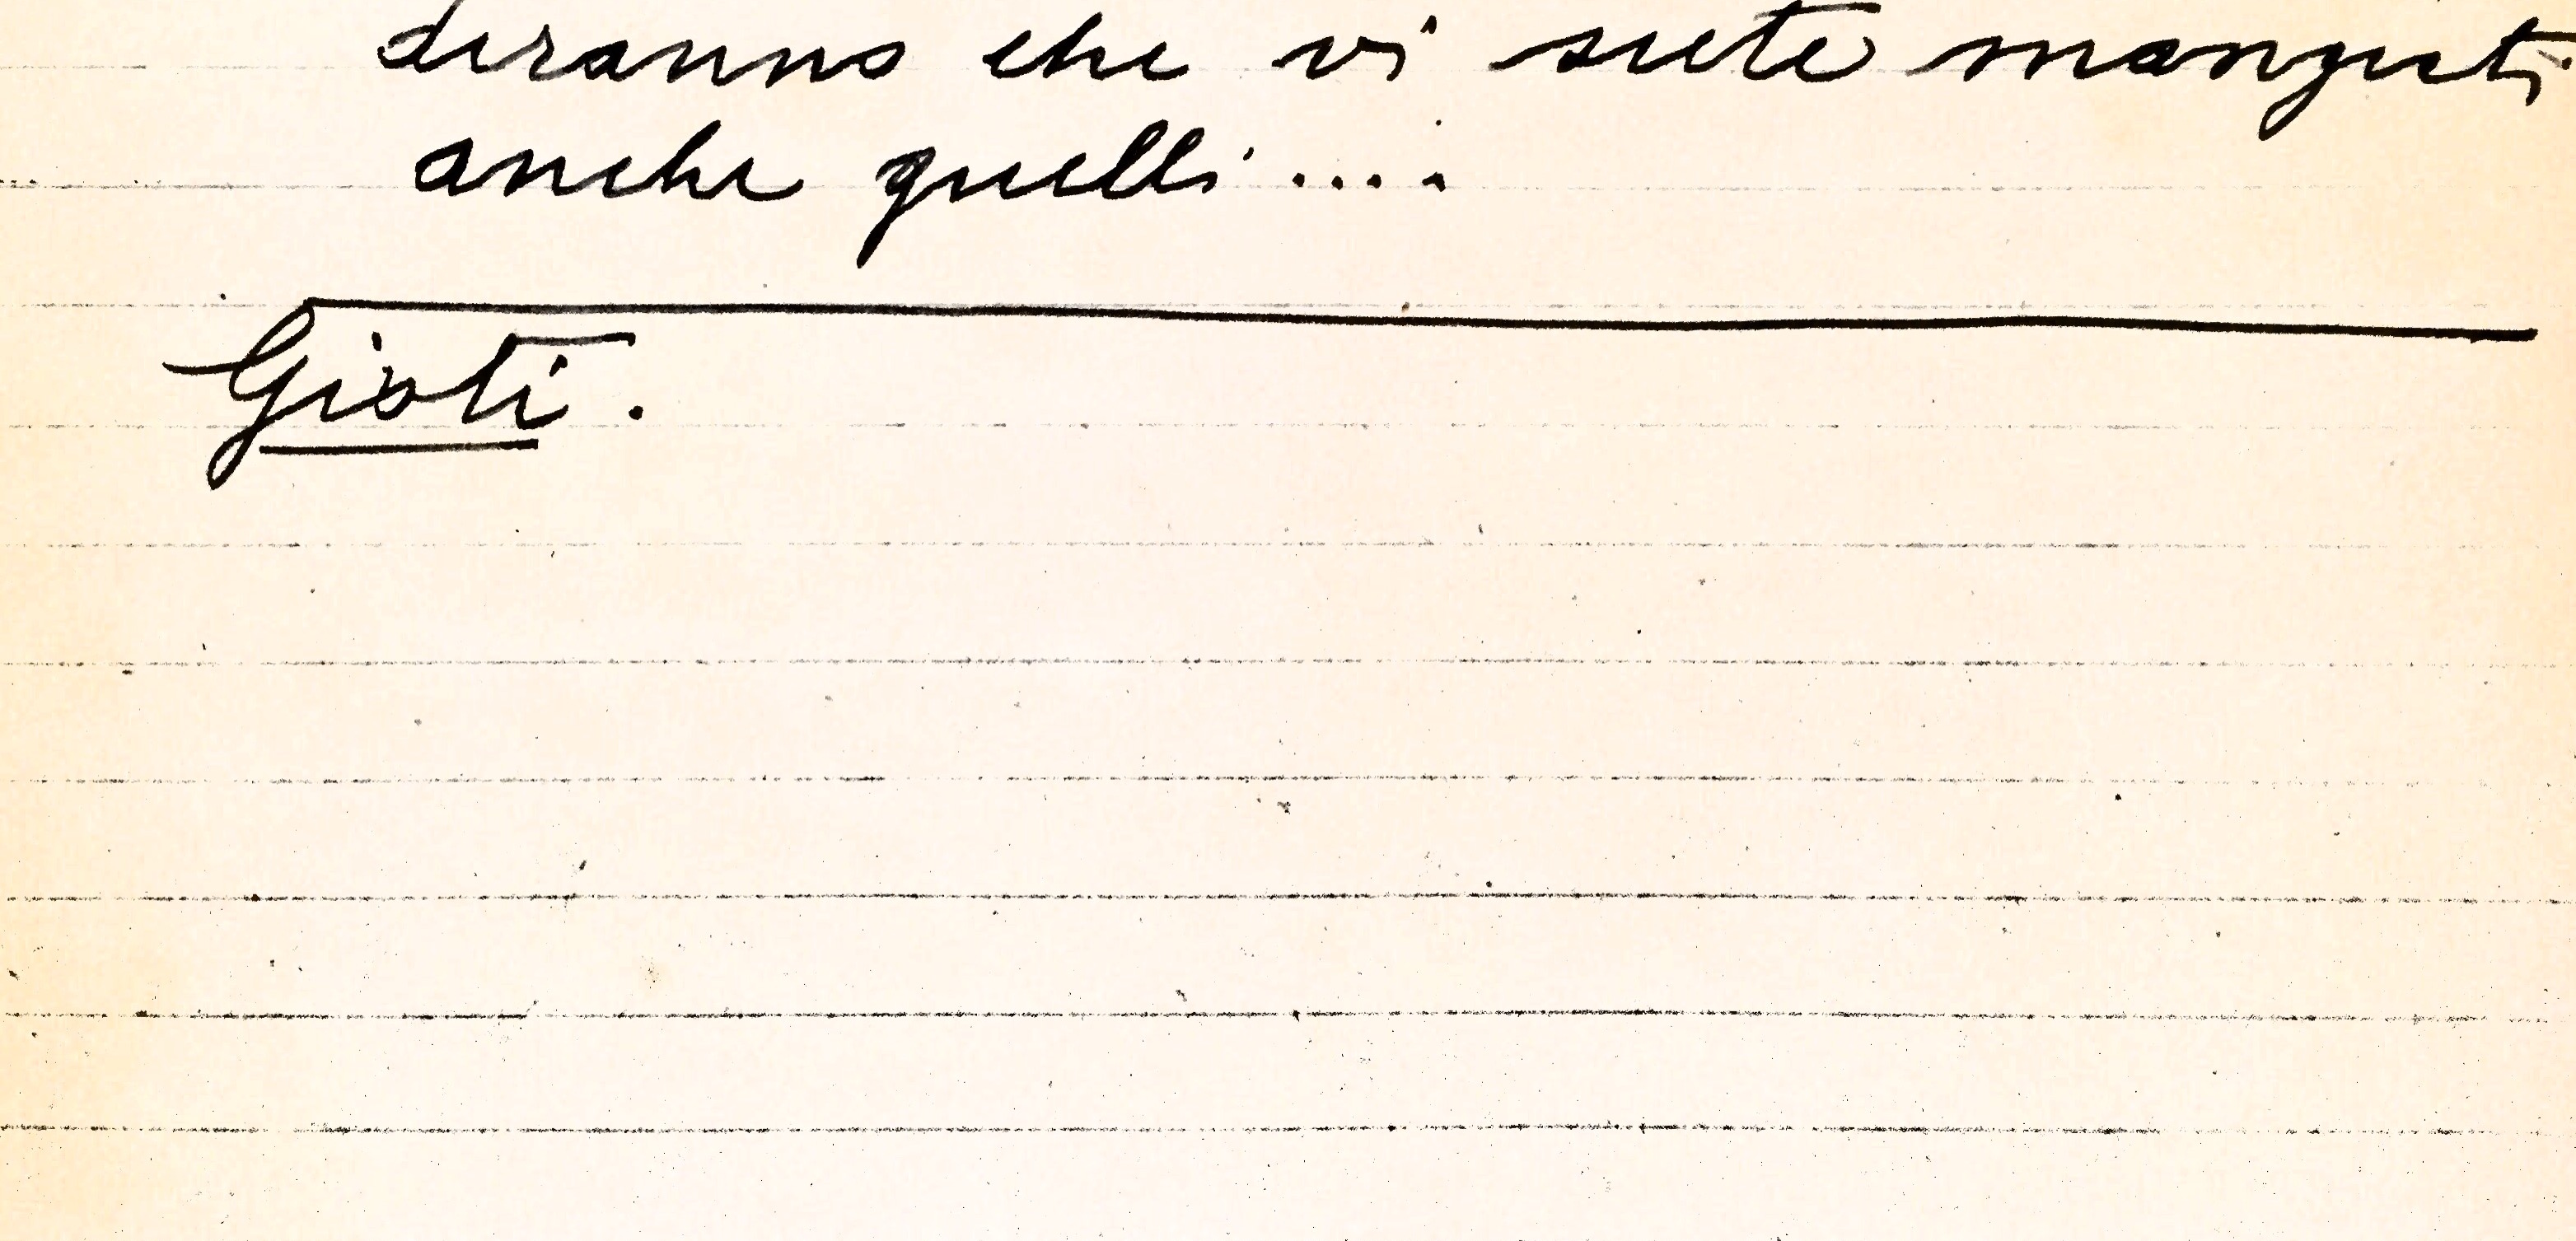 diranno che vi siete mangiati
anche quelli....
Gioti.